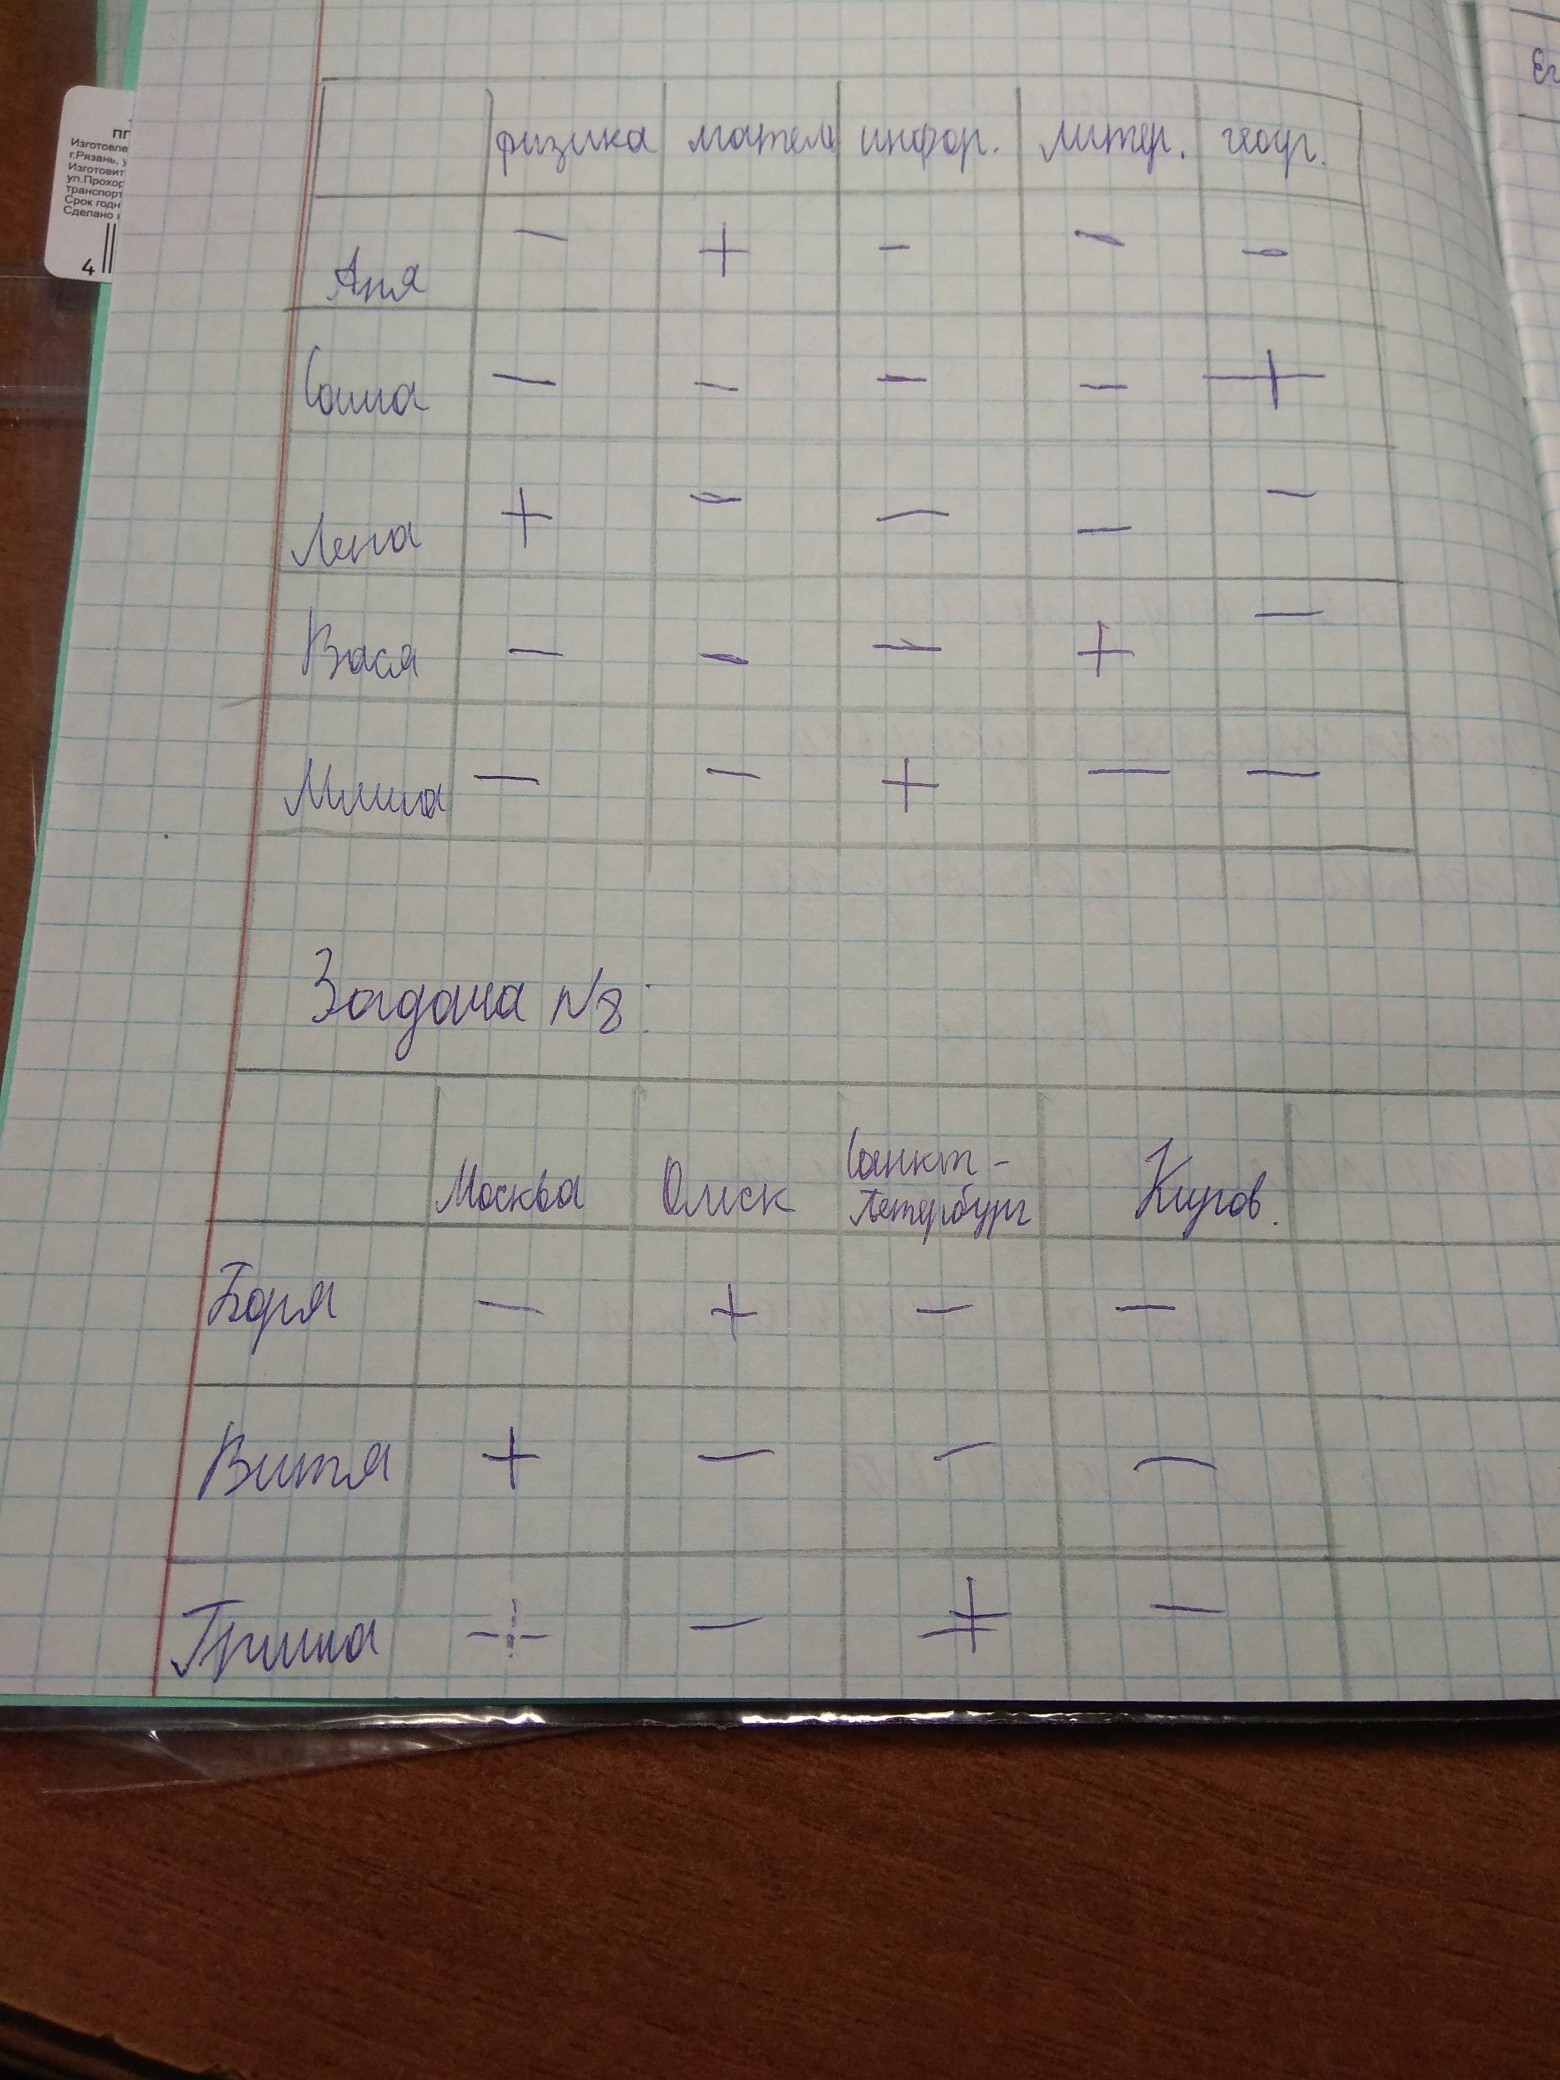 ПГ
Изготовле
г.Рязань, у
Изготовит
ул.Прохор
транспорт
Срок годн
Сделано
4
Ег
физика матем инфор. литер. геогр.
Аня - + - - -
Саша - - - - +
Лена + - - - -
Вася - - - + -
Миша - - + - -
Задача N8:
Москва Омск Санкт- Киров.
Петербург
Боря - + - -
Витя + - - -
Гриша - +  -